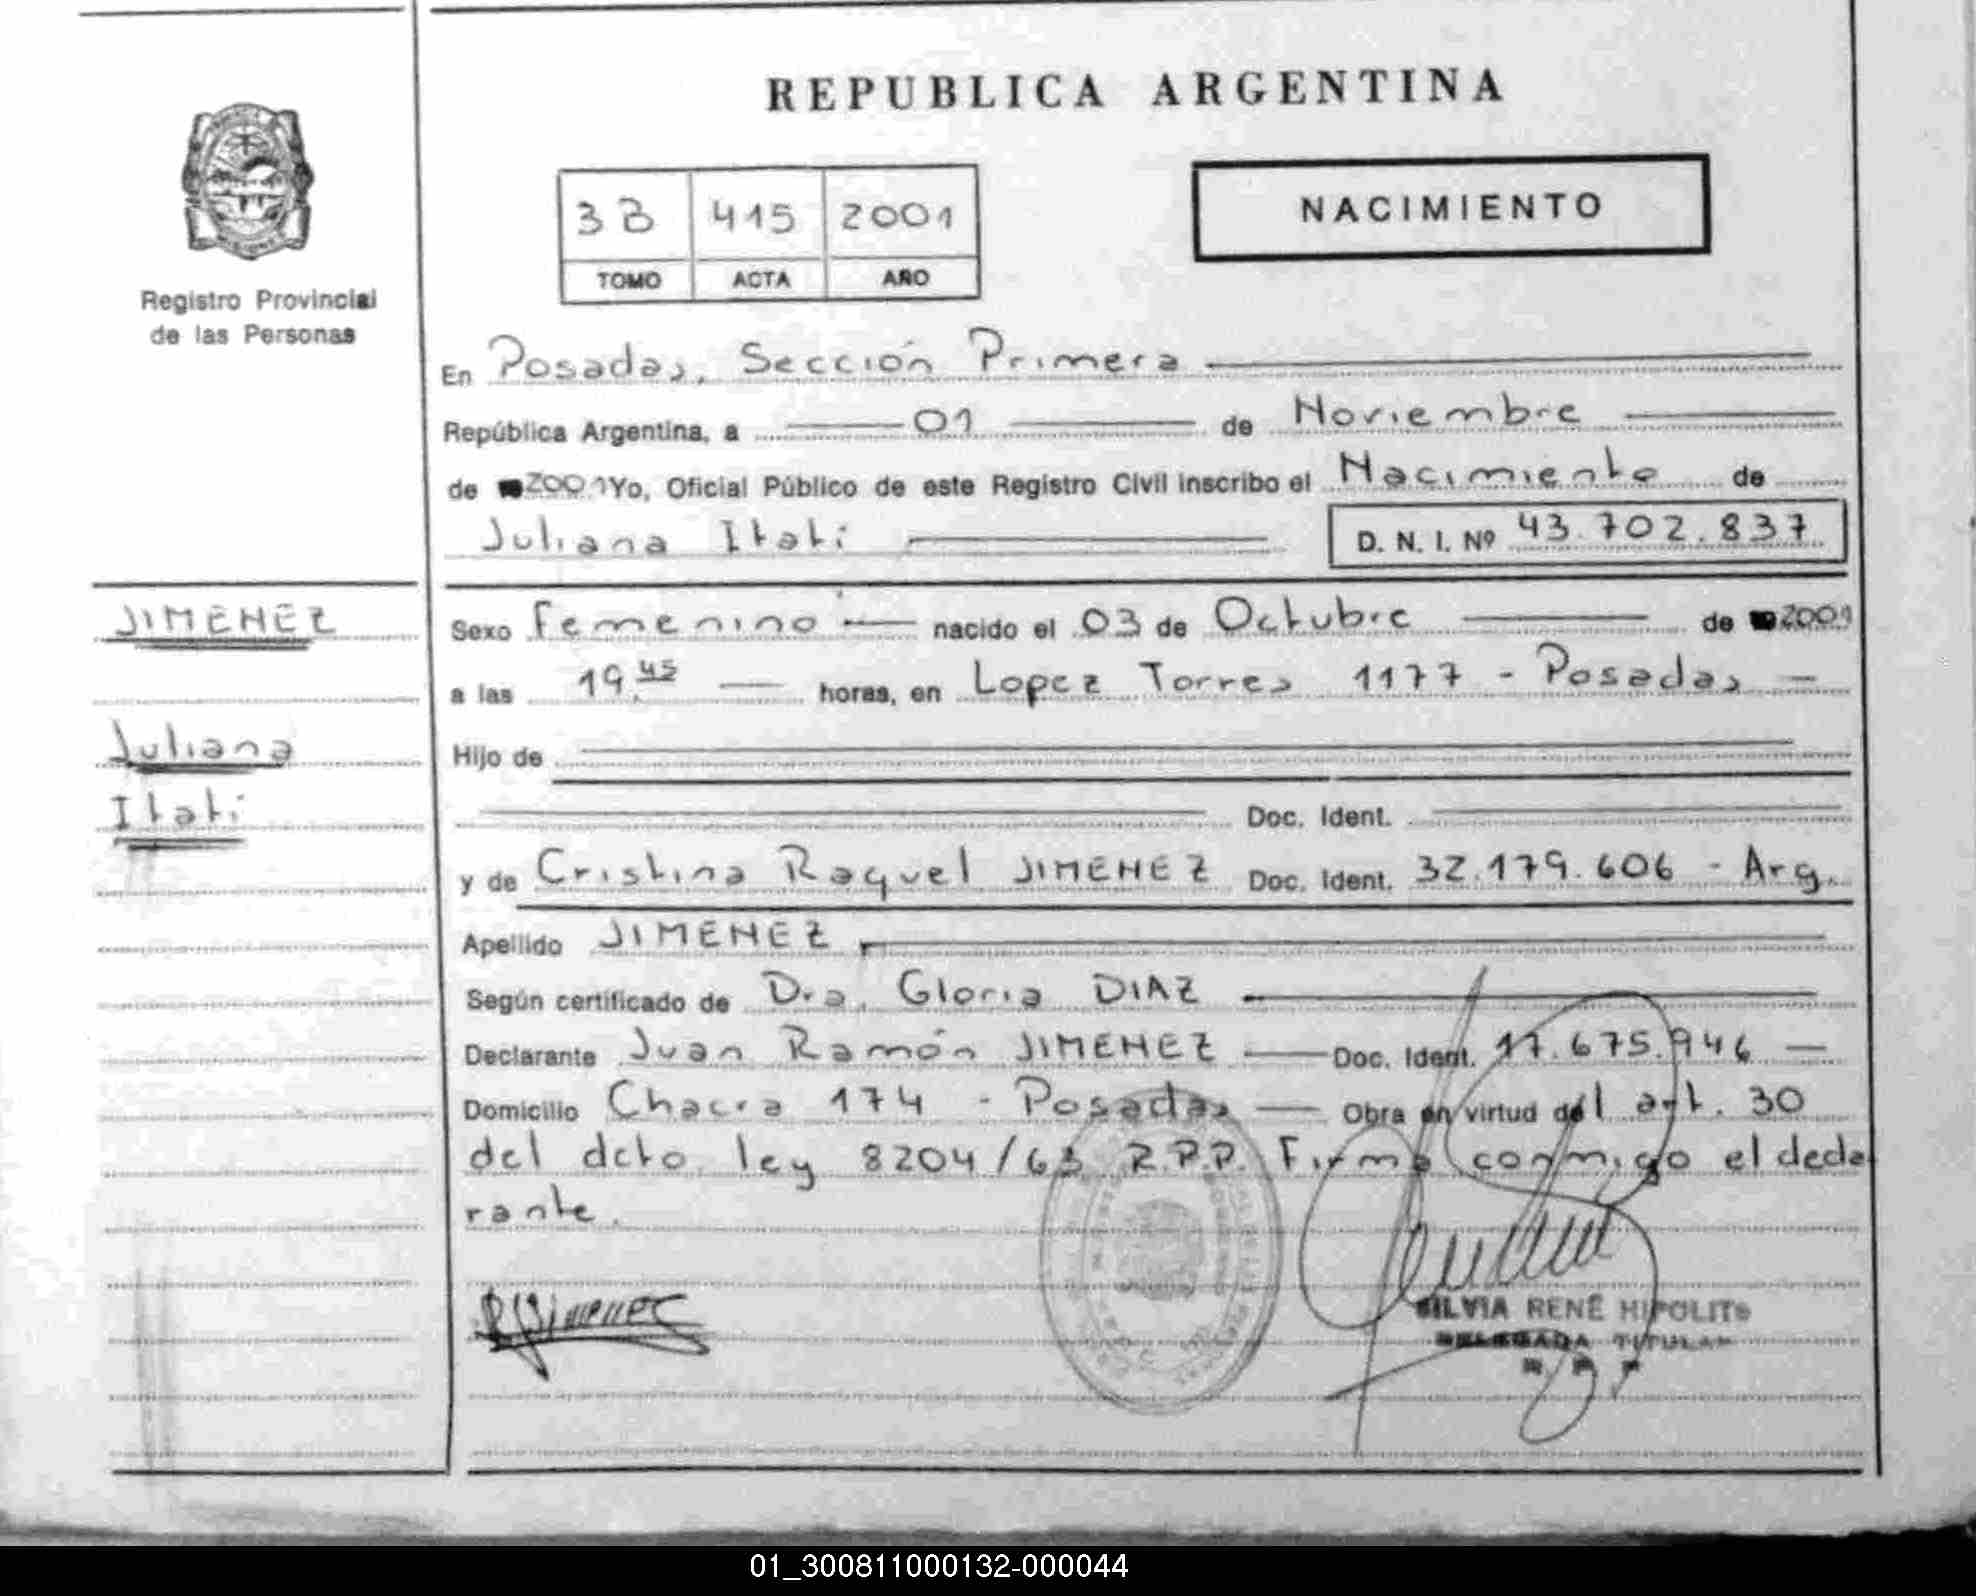 REPUBLICA ARGENTINA
Registro Provincial
de las Personas
3B 415 2001
TOMO ACTA AÑO
NACIMIENTO
En Posadas, Sección Primera
República Argentina, a 01 de Noviembre
de 2001 Yo, Oficial Público de este Registro Civil inscribo el Nacimiento de
Juliana Itatí D. N. I. Nº 43.702.837
JIMENEZ
Juliana
Itatí
Sexo Femenino nacido el 03 de Octubre de 2001
a las 19.45 horas, en Lopez Torres 1177 - Posadas
Hijo de
Doc. Ident.
y de Cristina Raquel JIMENEZ Doc. Ident. 32.179.606 - Arg.
Apellido JIMENEZ
Según certificado de Dra. Gloria DIAZ
Declarante Juan Ramón JIMENEZ Doc. Ident. 17.675.946
Domicilio Chacra 174 - Posadas Obra en virtud del art. 30
del dcto. ley 8204/63 R.P.P. Firma conmigo el decla
rante.
RJimenez
SILVIA RENÉ HIPOLITO
DELEGADA TITULAR
01_300811000132-000044